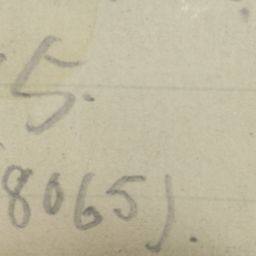 5.
8065).